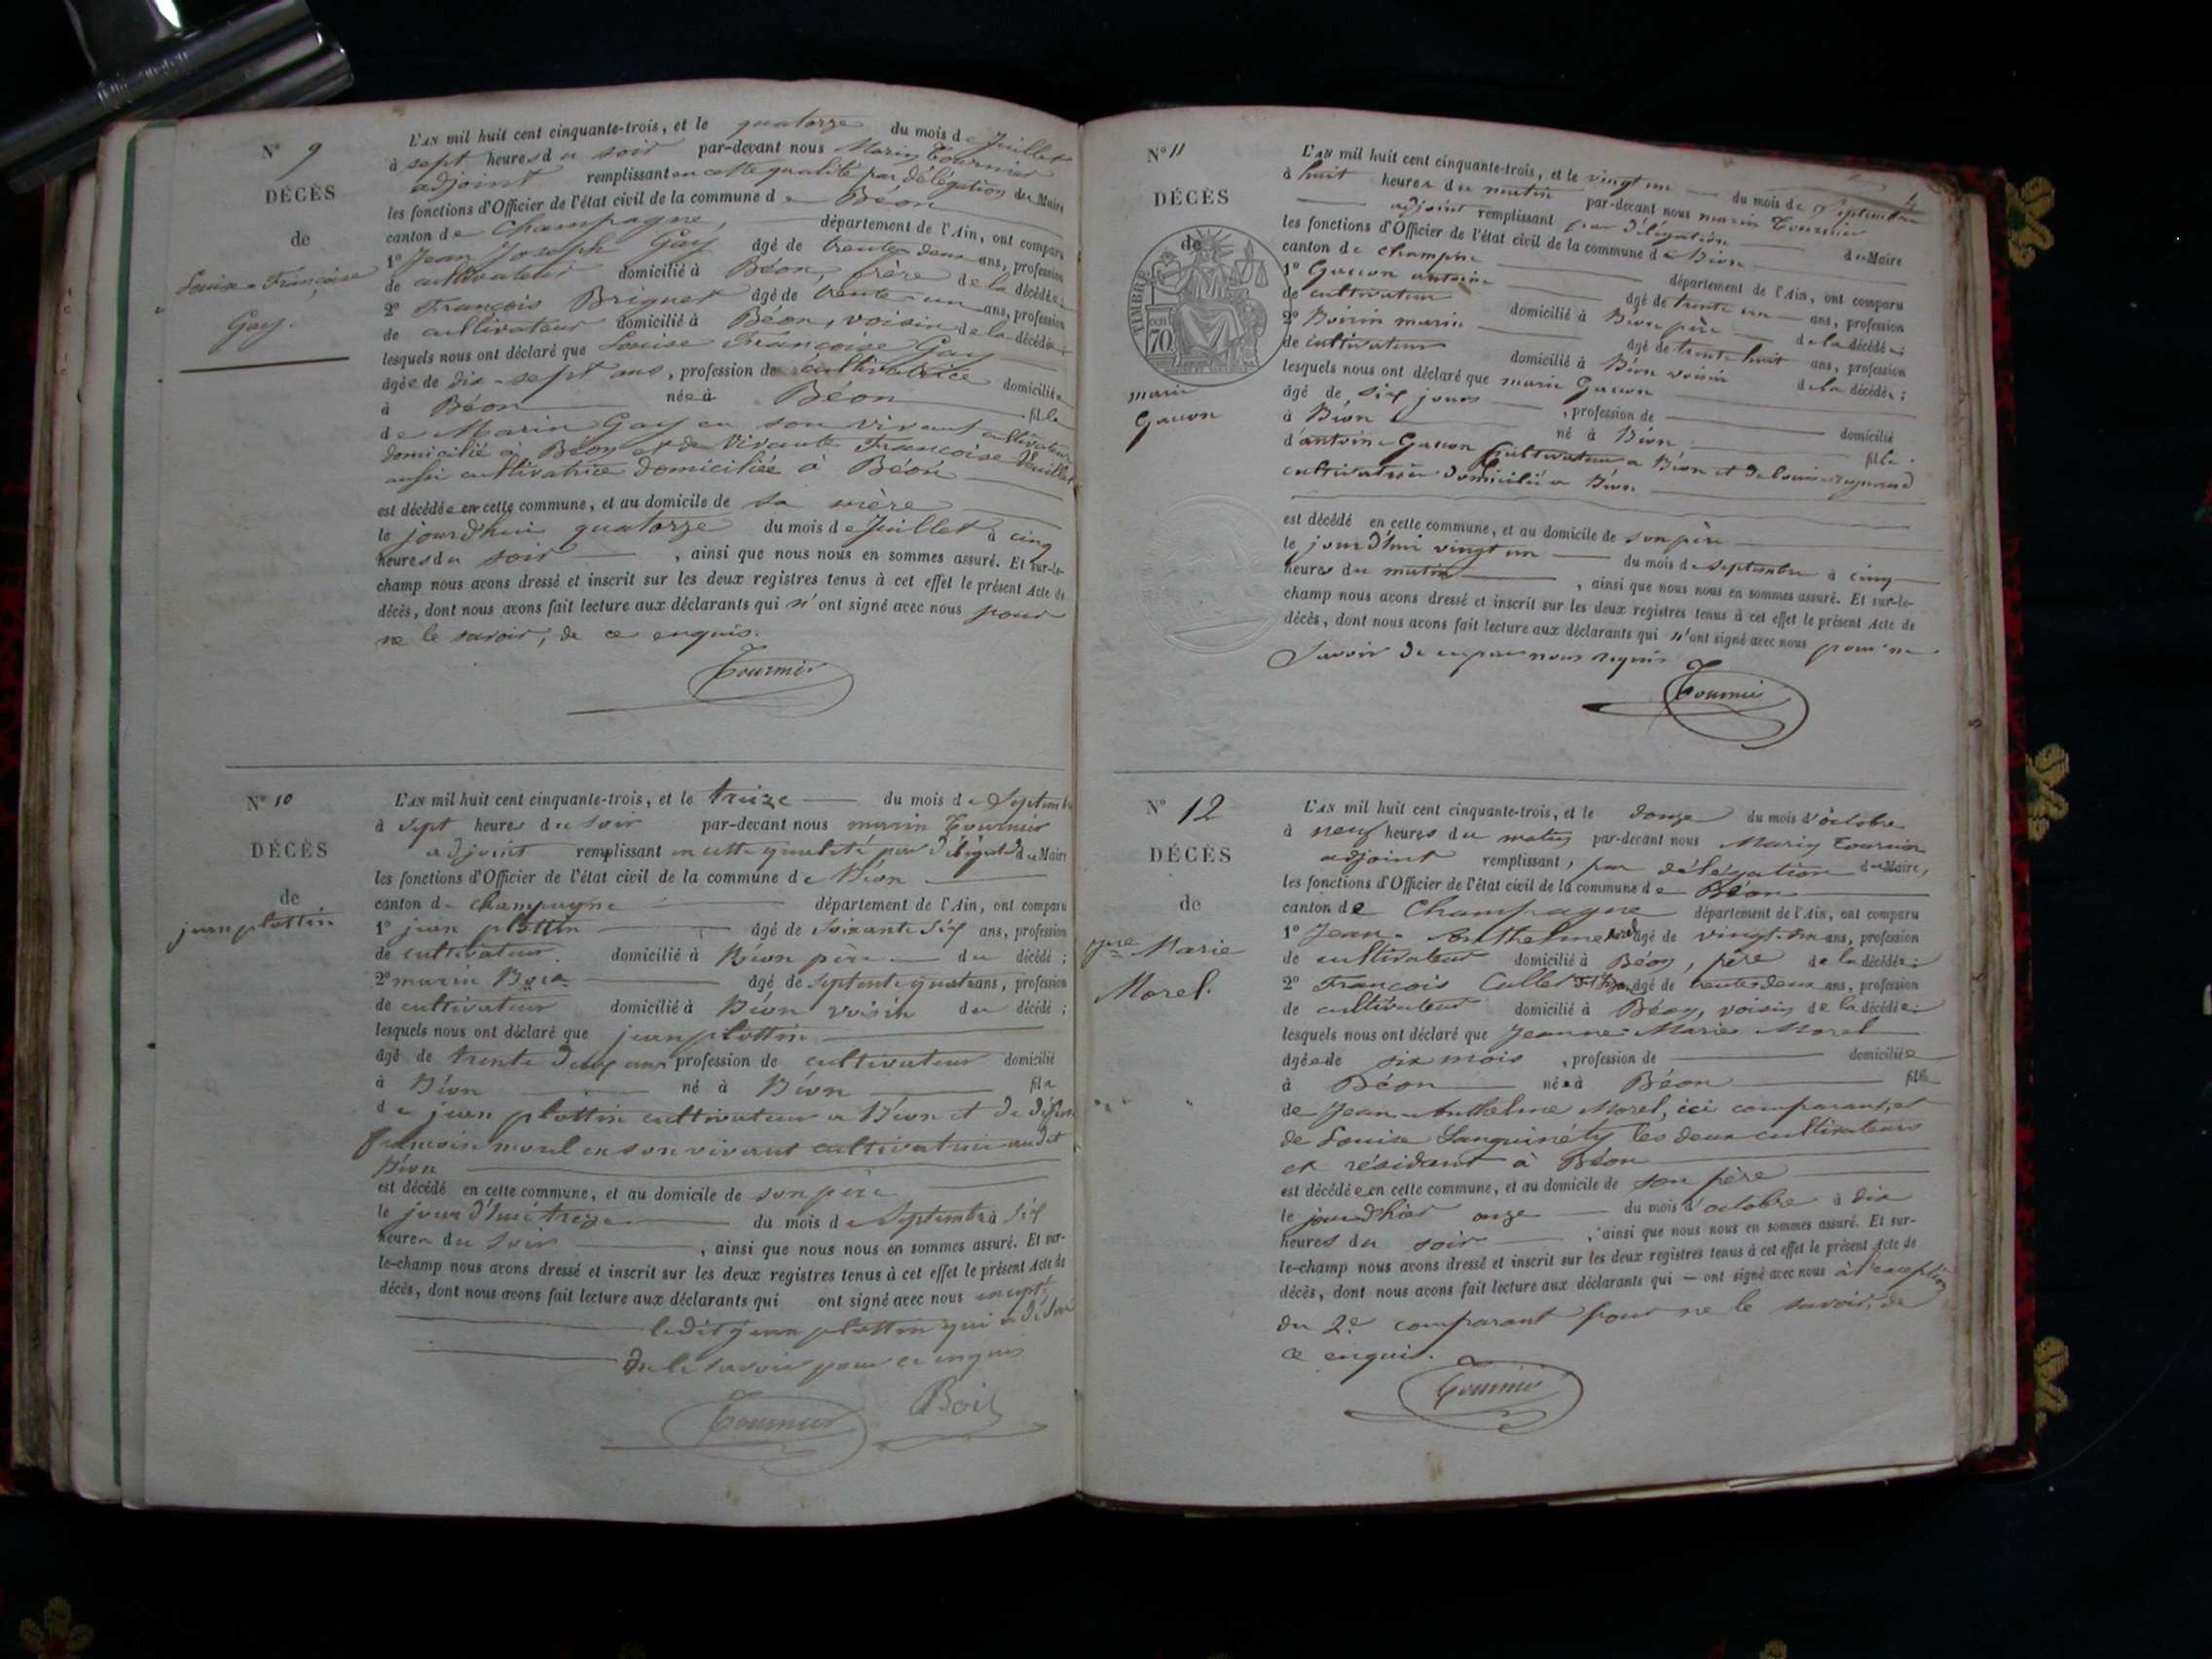 N° 9
DÉCÈS
de
Louise-Françoise
Gay.
L'AN mil huit cent cinquante-trois, et le quatorze du mois de Juillet
à sept heures du soir par-devant nous Marin Tournier
adjoint remplissant en cette qualité par délégation du Maire
les fonctions d'Officier de l'état civil de la commune de Béon
canton de Champagne, département de l'Ain, ont comparu
1° Jean Joseph Gay âgé de trente deux ans, profession
de cultivateur domicilié à Béon, frère de la décédée;
2° François Briguet âgé de trente-un ans, profession
de cultivateur domicilié à Béon, voisin de la décédée;
lesquels nous ont déclaré que Louise Françoise Gay
âgée de dix-sept ans, profession de cultivatrice domiciliée
à Béon née à Béon fille
de Marin Gay en son vivant cultivateur
domicilié à Béon et de vivante Françoise
aussi cultivatrice domiciliée à Béon
est décédée en cette commune, et au domicile de sa mère
le jourd'hui quatorze du mois de Juillet à cinq
heures du soir, ainsi que nous nous en sommes assuré. Et sur-le-
champ nous avons dressé et inscrit sur les deux registres tenus à cet effet le présent Acte de
décès, dont nous avons fait lecture aux déclarants qui n'ont signé avec nous pour
ne le savoir, de ce enquis.
Tournier
N° 10
DÉCÈS
de
jean plottin
L'AN mil huit cent cinquante-trois, et le treize du mois de Septembre
à sept heures du soir par-devant nous marin Tournier
adjoint remplissant en cette qualité par délégation du Maire
les fonctions d'Officier de l'état civil de la commune de Béon
canton de champagne département de l'Ain, ont comparu
1° jean plottin âgé de soixante six ans, profession
de cultivateur domicilié à Béon père du décédé;
2° marin âgé de septente quatre ans, profession
de cultivateur domicilié à Béon voisin du décédé;
lesquels nous ont déclaré que jean plottin
âgé de trente deux ans profession de cultivateur domicilié
à Béon né à Béon fils
de jean plottin cultivateur a Béon et de
françoise morel en son vivant cultivatrice audit
Béon
est décédé en cette commune, et au domicile de son père
le jourd'hui treize du mois de Septembre à six
heures du soir, ainsi que nous nous en sommes assuré. Et sur-
le-champ nous avons dressé et inscrit sur les deux registres tenus à cet effet le présent Acte de
décès, dont nous avons fait lecture aux déclarants qui ont signé avec nous
ledit jean plottin qui a
de le savoir pour ce enquis
Tournier Boit
N° 11
DÉCÈS
de
TIMBRE
70
marie
Gacon
4
L'AN mil huit cent cinquante-trois, et le vingt un du mois de Septembre
à huit heures du matin par-devant nous marin Tournier
adjoint remplissant par délégation du Maire
les fonctions d'Officier de l'état civil de la commune de Béon
canton de département de l'Ain, ont comparu
1° Gacon antoine âgé de trente un ans, profession
de cultivateur domicilié à Béon père de la décédée;
2° marin âgé de trente huit ans, profession
de cultivateur domicilié à Béon voisin de la décédée;
lesquels nous ont déclaré que marie Gacon
âgé de six jours, profession de domicilié
à Béon né à Béon fille
d'antoine Gacon cultivateur a Béon et de louise
cultivatrice domiciliée a Béon
est décédé en cette commune, et au domicile de son père
le jourd'hui vingt un du mois de septembre à cinq
heures du matin, ainsi que nous nous en sommes assuré. Et sur-le-
champ nous avons dressé et inscrit sur les deux registres tenus à cet effet le présent Acte de
décès, dont nous avons fait lecture aux déclarants qui n'ont signé avec nous pour ne
savoir de ce par nous requis
Tournier
N° 12
DÉCÈS
de
Marie
Morel.
L'AN mil huit cent cinquante-trois, et le douze du mois d'octobre
à neuf heures du matin par-devant nous Marin Tournier
adjoint remplissant, par délégation du Maire,
les fonctions d'Officier de l'état civil de la commune de Béon
canton de Champagne département de l'Ain, ont comparu
1° Jean-Anthelme Morel âgé de ans, profession
de cultivateur domicilié à Béon, père de la décédée;
2° François Callet âgé de trente deux ans, profession
de cultivateur domicilié à Béon, voisin de la décédée;
lesquels nous ont déclaré que Jeanne-Marie Morel
âgée de six mois, profession de domiciliée
à Béon née à Béon fille
de Jean-Anthelme Morel, ici comparant, et
de Louise Sanguinéty les deux cultivateurs
et résidant à Béon
est décédée en cette commune, et au domicile de son père
le jour d'hier onze du mois d'octobre à dix
heures du soir, ainsi que nous nous en sommes assuré. Et sur-
le-champ nous avons dressé et inscrit sur les deux registres tenus à cet effet le présent Acte de
décès, dont nous avons fait lecture aux déclarants qui — ont signé avec nous à l'exception
du 2e comparant pour ne le savoir, de
ce enquis.
Tournier